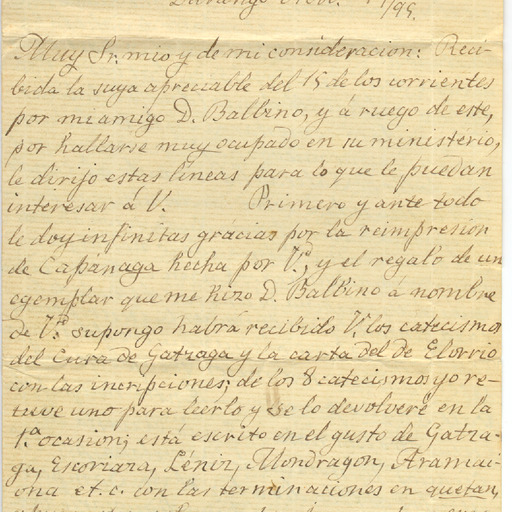 Durango
/95.
Muy Sr. mio y de mi consideracion: Reci-
bida la suya apreciable del 15 de los corrientes
por mi amigo D. Balbino, y á ruego de este,
por hallarse muy ocupado en su ministerio,
le dirijo estas lineas para lo que le puedan
interesar á V. Primero y ante todo
le doy infinitas gracias por la reimpresion
de Capanaga hecha por Vd., y el regalo de un
egemplar que me hizo D. Balbino á nombre
de Vd. supongo habrá recibido V. los catecismos
del Cura de Gatzaga y la carta del de Elorrio
con las incripciones; de los 8 catecismos yo re-
tuve uno para leerlo y se lo devolveré en la
1ª ocasion; está escrito en el gusto de Gatza-
ga, Escoriaza, Léniz, Mondragon, Aramai-
ona et. c. con las terminaciones en quetan,